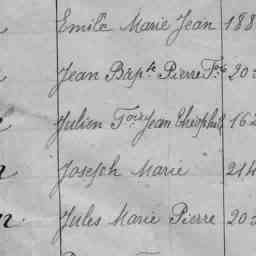 Emile Marie Jean 188
Jean Bapte Pierre Fois 202
Julien Fois Jean Théophile 162
Joseph Marie 214
Jules Marie Pierre 202